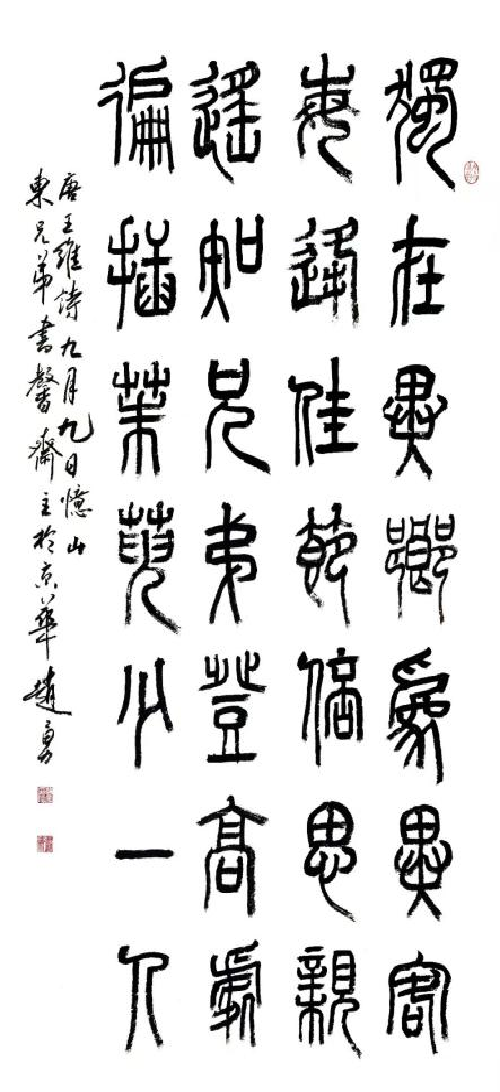 獨在異鄉爲異客
每逢佳節倍思親
遙知兄弟登高處
徧插茱萸少一人
唐王維詩九月九日憶山
東兄弟書馨齋主於京華趙勇